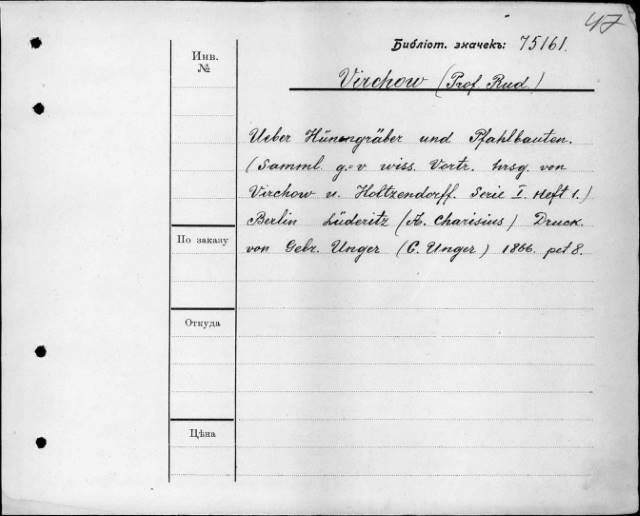 47
Библіот. значекъ: 75161.
Инв.
№
Virchow (Prof Rud.)
Ueber Hünengräber und Pfahlbauten.
(Samml. g.-v wiss. Vortr. hrsg. von
Virchow u. Holtzendorff. Serie I. Heft 1.)
Berlin Lüderitz (A. Charisius) Druck.
По заказу
von Gebr. Unger (C. Unger) 1866. pet 8.
Откуда
Цѣна